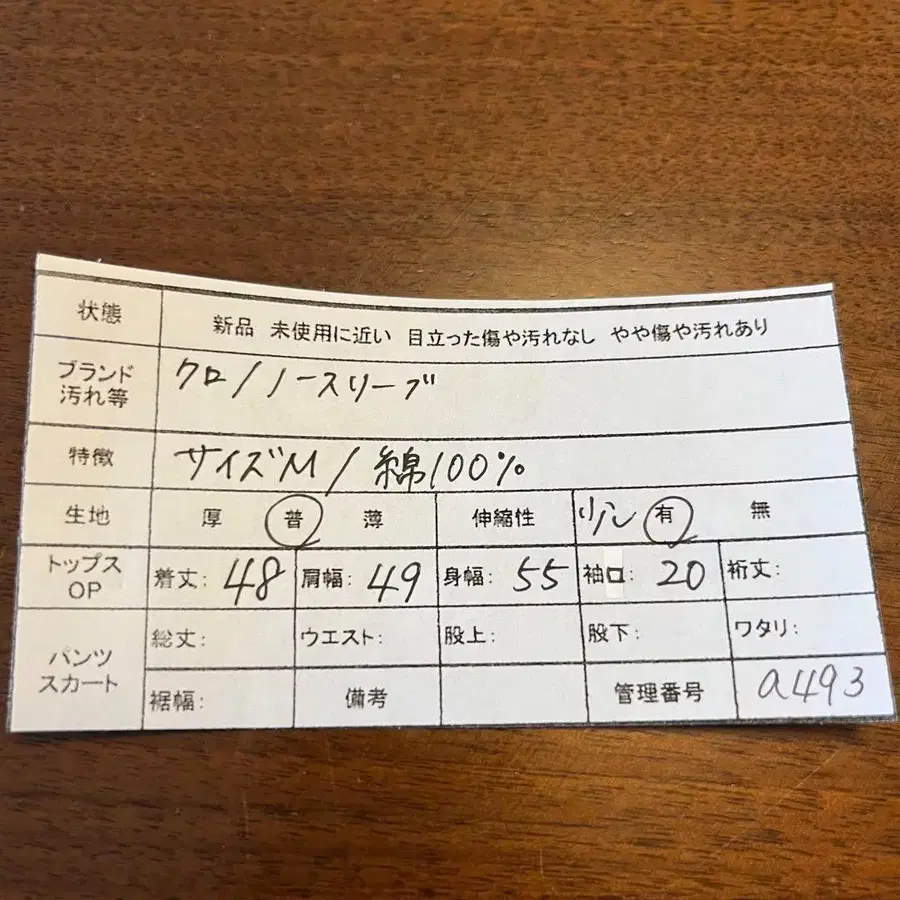 状態 新品 未使用に近い 目立った傷や汚れなし やや傷や汚れあり
ブランド 汚れ等 クロ/ノースリーブ
特徴 サイズM/綿100%
生地 厚 普 薄 伸縮性 少し 有 無
トップス OP 着丈: 48 肩幅: 49 身幅: 55 袖口: 20 裄丈:
パンツ スカート 総丈: ウエスト: 股上: 股下: ワタリ:
裾幅: 備考 管理番号 a493